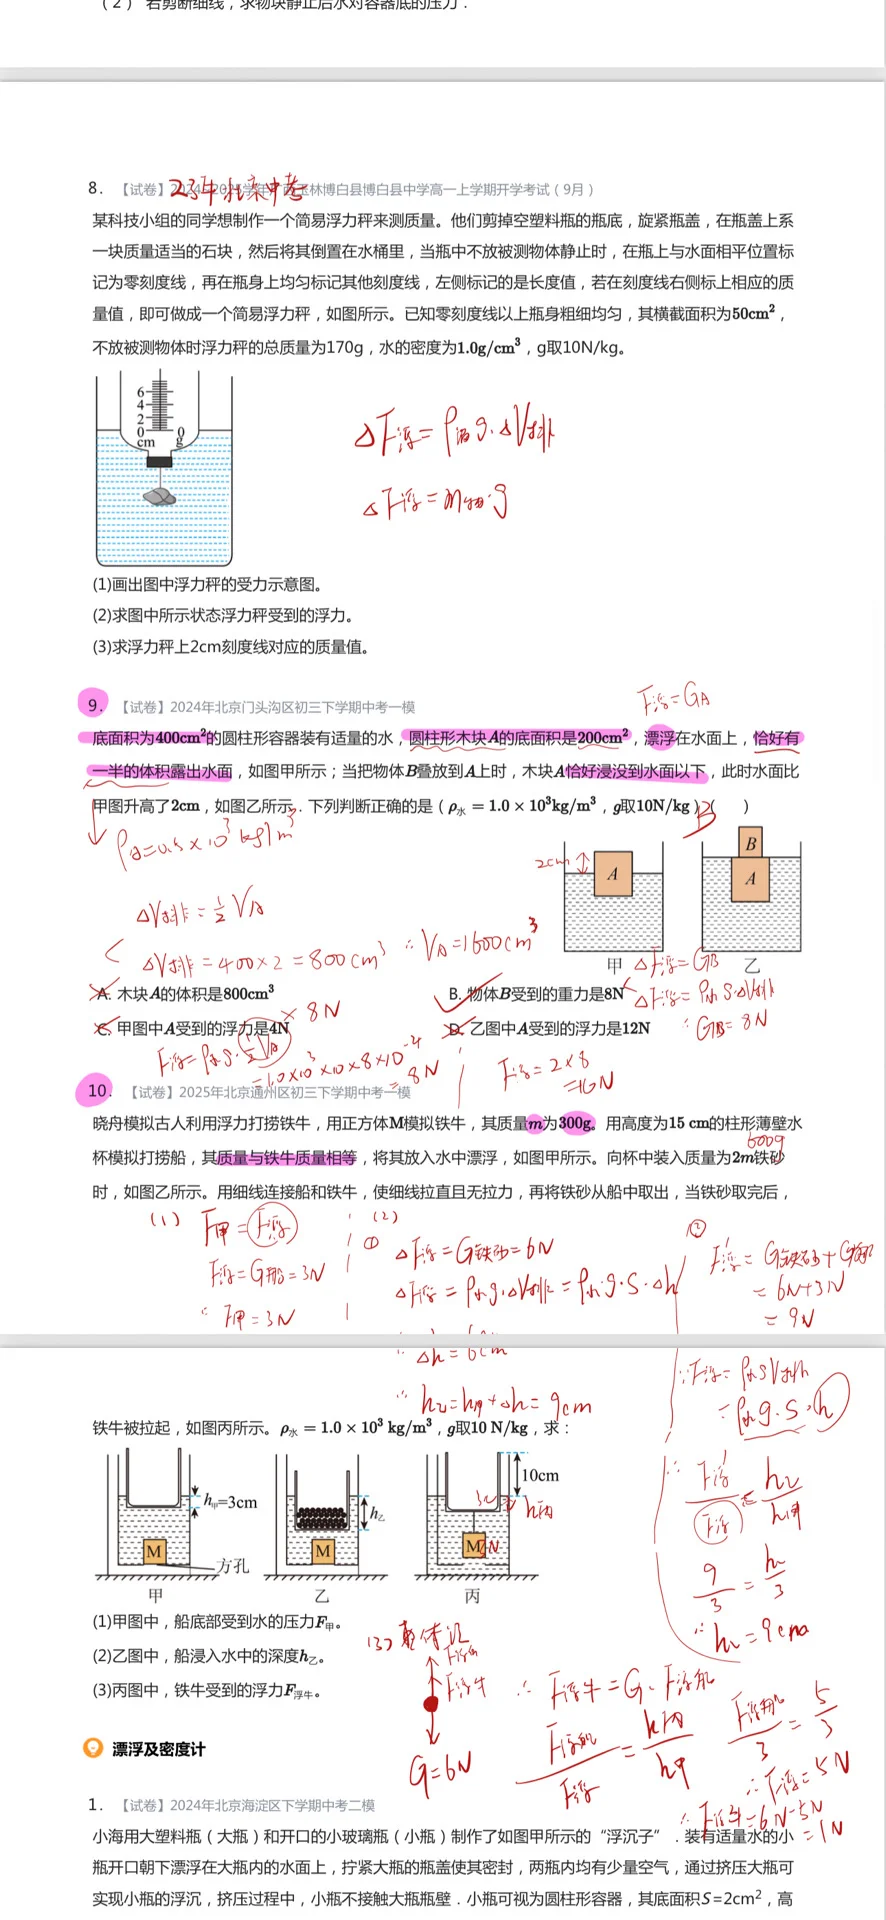 （2） 若剪断细线，求物块静止后水对容器底的压力．
8. 【试卷】2024年
23年北京中考
林博白县博白县中学高一上学期开学考试（9月）
某科技小组的同学想制作一个简易浮力秤来测质量。他们剪掉空塑料瓶的瓶底，旋紧瓶盖，在瓶盖上系
一块质量适当的石块，然后将其倒置在水桶里，当瓶中不放被测物体静止时，在瓶上与水面相平位置标
记为零刻度线，再在瓶身上均匀标记其他刻度线，左侧标记的是长度值，若在刻度线右侧标上相应的质
量值，即可做成一个简易浮力秤，如图所示。已知零刻度线以上瓶身粗细均匀，其横截面积为50cm²，
不放被测物体时浮力秤的总质量为170g，水的密度为1.0g/cm³，g取10N/kg。
6
4
2
0 0
cm g
△F浮=ρ液g·△V排
△F浮=m物·g
(1)画出图中浮力秤的受力示意图。
(2)求图中所示状态浮力秤受到的浮力。
(3)求浮力秤上2cm刻度线对应的质量值。
F浮=GA
9. 【试卷】2024年北京门头沟区初三下学期中考一模
底面积为400cm²的圆柱形容器装有适量的水，圆柱形木块A的底面积是200cm²，漂浮在水面上，恰好有
一半的体积露出水面，如图甲所示；当把物体B叠放到A上时，木块A恰好浸没到水面以下，此时水面比
甲图升高了2cm，如图乙所示．下列判断正确的是（ρ水 = 1.0 × 10³kg/m³，g取10N/kg）（ B ）
ρA=0.5×10³kg/m³
2cm
A
B
A
甲 乙
△V排=½VA
△V排=400×2=800cm³ ∴VA=1600cm³
△F浮=GB
△F浮=ρ水g·△V排
∴GB=8N
A. 木块A的体积是800cm³
B. 物体B受到的重力是8N
C. 甲图中A受到的浮力是4N
× 8N
D. 乙图中A受到的浮力是12N
F浮=ρ水g·½VA
=1.0×10³×10×8×10⁻⁴
=8N
F浮=2×8
=16N
10. 【试卷】2025年北京通州区初三下学期中考一模
晓舟模拟古人利用浮力打捞铁牛，用正方体M模拟铁牛，其质量m为300g。用高度为15 cm的柱形薄壁水
杯模拟打捞船，其质量与铁牛质量相等，将其放入水中漂浮，如图甲所示。向杯中装入质量为2m铁砂
600g
时，如图乙所示。用细线连接船和铁牛，使细线拉直且无拉力，再将铁砂从船中取出，当铁砂取完后，
(1) F甲=F浮
F浮=G船=3N
∴ F甲=3N
(2)
① △F浮=G铁砂=6N
△F浮=ρ水g·△V排=ρ水g·S·△h
∴ △h=6cm
∴ h乙=h甲+△h=9cm
② F浮′=G铁砂+G船
=6N+3N
=9N
∵F浮=ρ水gV排
=ρ水g·S·h
∴ F浮′/F浮=h乙/h甲
9/3=h乙/3
∴ h乙=9cm
铁牛被拉起，如图丙所示。ρ水 = 1.0 × 10³ kg/m³，g取10 N/kg，求：
h甲=3cm
M
方孔
甲
h乙
M
乙
10cm
h丙
M
丙
(1)甲图中，船底部受到水的压力F甲。
(2)乙图中，船浸入水中的深度h乙。
(3)丙图中，铁牛受到的浮力F浮牛。
(3) 整体法
F浮船
F浮牛
G=6N
∴ F浮牛=G-F浮船
F浮船/F浮=h丙/h甲
F浮船/3=5/3
∴F浮=5N
∴F浮牛=6N-5N
=1N
漂浮及密度计
1. 【试卷】2024年北京海淀区下学期中考二模
小海用大塑料瓶（大瓶）和开口的小玻璃瓶（小瓶）制作了如图甲所示的“浮沉子”．装有适量水的小
瓶开口朝下漂浮在大瓶内的水面上，拧紧大瓶的瓶盖使其密封，两瓶内均有少量空气，通过挤压大瓶可
实现小瓶的浮沉，挤压过程中，小瓶不接触大瓶瓶壁．小瓶可视为圆柱形容器，其底面积S=2cm²，高